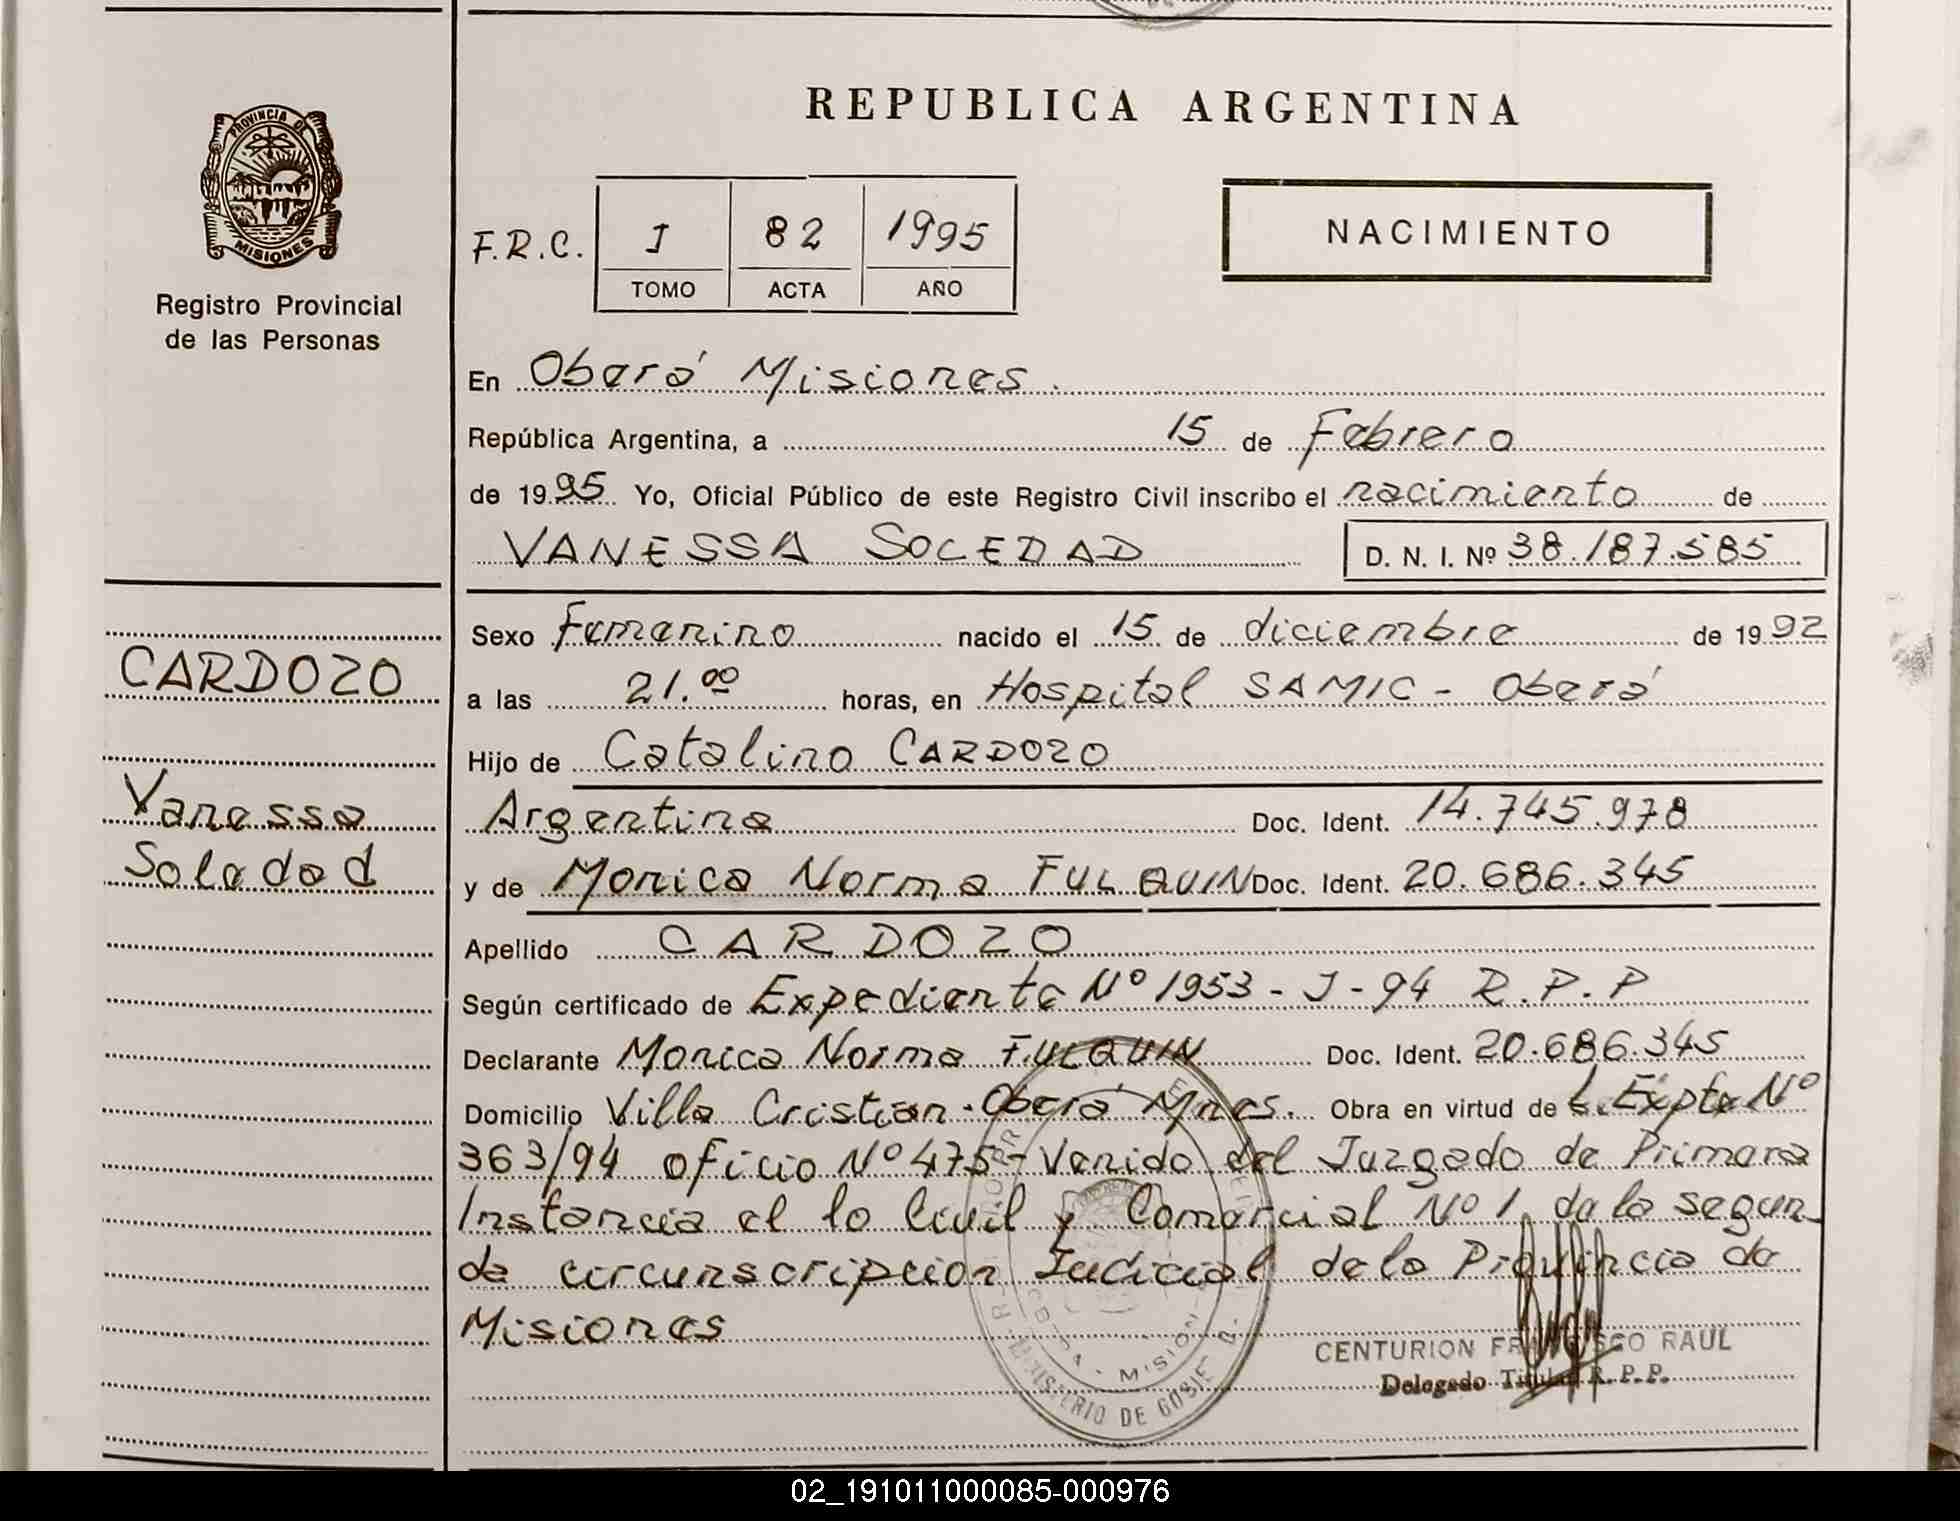 REPUBLICA ARGENTINA
PROVINCIA DE
MISIONES
Registro Provincial
de las Personas
F.R.C. I 82 1995
TOMO ACTA AÑO
NACIMIENTO
En Oberá Misiones.
República Argentina, a 15 de Febrero
de 1995 Yo, Oficial Público de este Registro Civil inscribo el nacimiento de
VANESSA SOLEDAD D. N. I. Nº 38.187.585
Sexo Femenino nacido el 15 de diciembre de 1992
CARDOZO
a las 21.00 horas, en Hospital SAMIC - Oberá
Hijo de Catalino CARDOZO
Vanessa
Soledad
Argentina Doc. Ident. 14.745.978
y de Monica Norma FULQUIN Doc. Ident. 20.686.345
Apellido CARDOZO
Según certificado de Expediente Nº 1953 - J - 94 R.P.P
Declarante Monica Norma FULQUIN Doc. Ident. 20.686.345
Domicilio Villa Cristian - Oberá Mnes. Obra en virtud de Expte Nº
363/94 oficio Nº 475 - Venido del Juzgado de Primera
Instancia el lo Civil y Comercial Nº 1 de la segun-
da circunscripcion Judicial de la Provincia de
Misiones
CENTURION FRANCISCO RAUL
Delegado Titular R.P.P.
MINISTERIO DE GOB
MISION
02_191011000085-000976